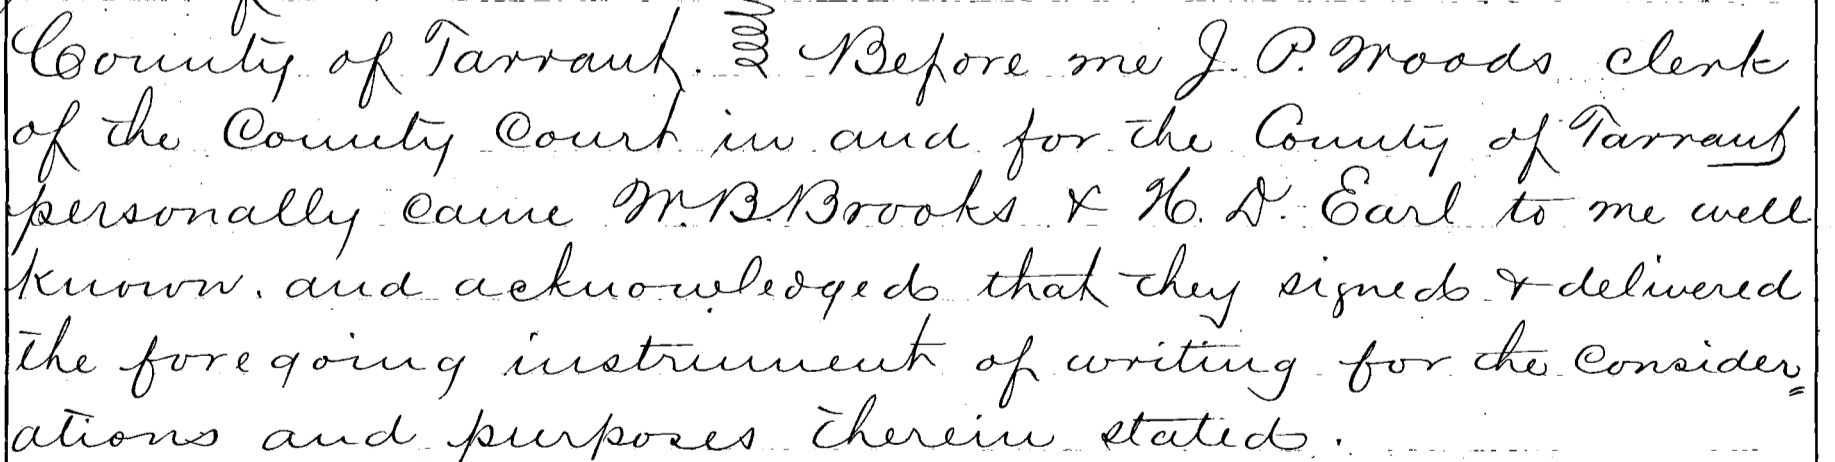 County of Tarrant. Before me J. P. Woods clerk
of the County Court in and for the County of Tarrant
personally came W. B. Brooks & H. D. Earl to me well
known. and acknowledged that they signed & delivered
the foregoing instrument of writing for the consider=
ations and purposes therein stated.